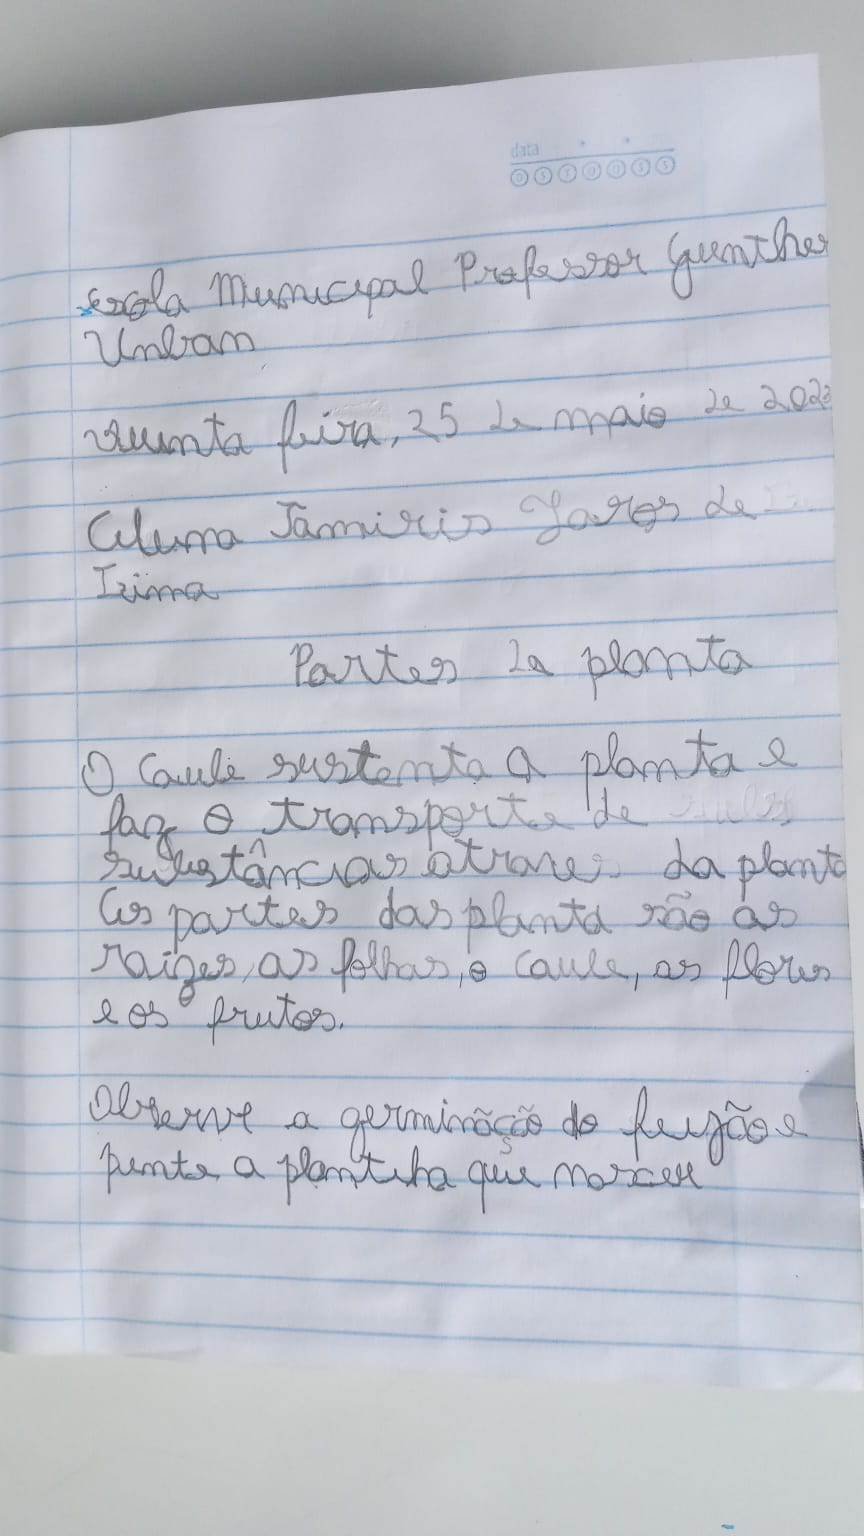 data
D S T Q Q S S
escola Municipal Professor Gunther
Urban
quinta feira, 25 de maio de 2023
Aluna Tamiris Jaros de
Lima
Partes da planta
O caule sustenta a planta e
faz o transporte de
sustâncias atraves da planta
As partes das planta são as
raizes, as folhas, o caule, as flores
e os frutos.
Observe a germinãção do feijão e
pinte a plantiha que nasceu